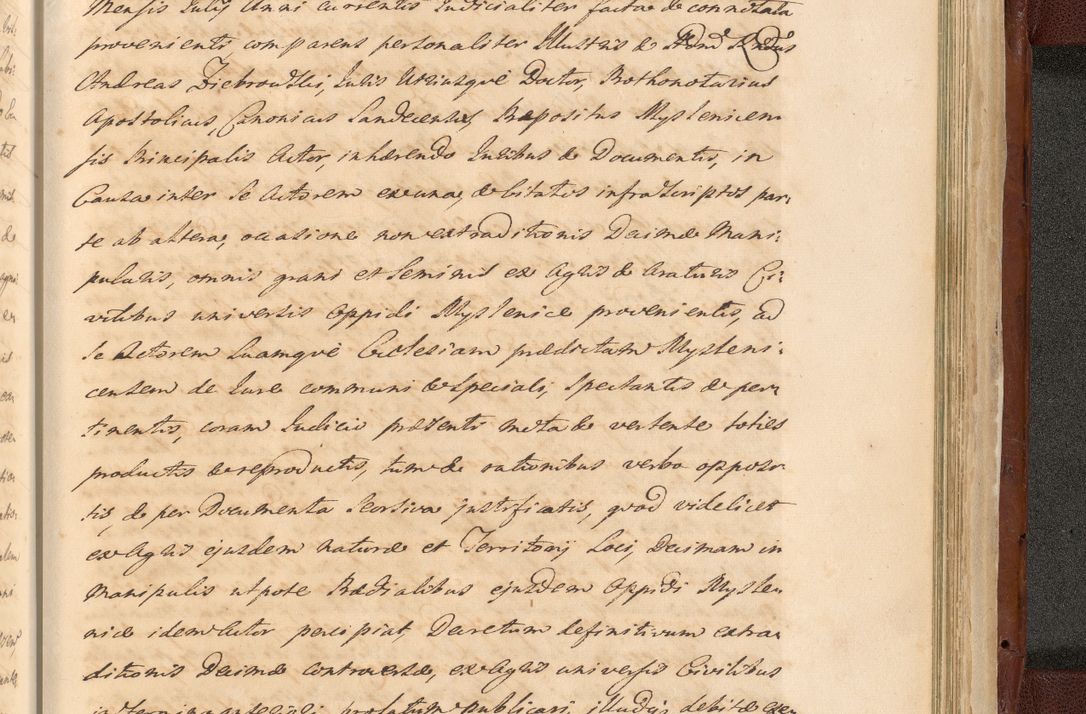 Mensis Julij Anni currentis Judicialiter factae de connotata
provenienti comparens personaliter Illustris & Rend Rndus
Andreas Ziebrowski, Juris Utriusque Doctor, Prothonotarius
Apostolicus, Canonicus Sandecensis, Praepositus Myslenicen
sis Principalis Actor, inhaerendo Juribus & Documentis, in
Causa inter se Actorem ex una, & Citatos infrascriptos par:
te ab altera, occasione non extraditionis Decimae Mani:
pularis, omnis grani et seminis ex Agris & Araturis Ci:
vilibus universis Oppidi Myslenice provenientis, ad
se Actorem suamque Ecclesiam praedictam Mysleni:
censem de Jure communi & speciali, spectantis & per:
tinentis, coram Judicio praesenti mota & vertente toties
productis & reproductis, tum & rationibus verbo opposi
tis, & per Documenta seorsiva justificatis, quod videlicet
ex Agris ejusdem naturae et Territorij Loci, Decimam in
Manipulis utpote Praedialibus ejusdem Oppidi Mysle
nice idem Actor percipiat, Decretum definitivum extra
ditionis Decimae controversae, ex Agris universis Civilibus
publicari, illudq debitae exe